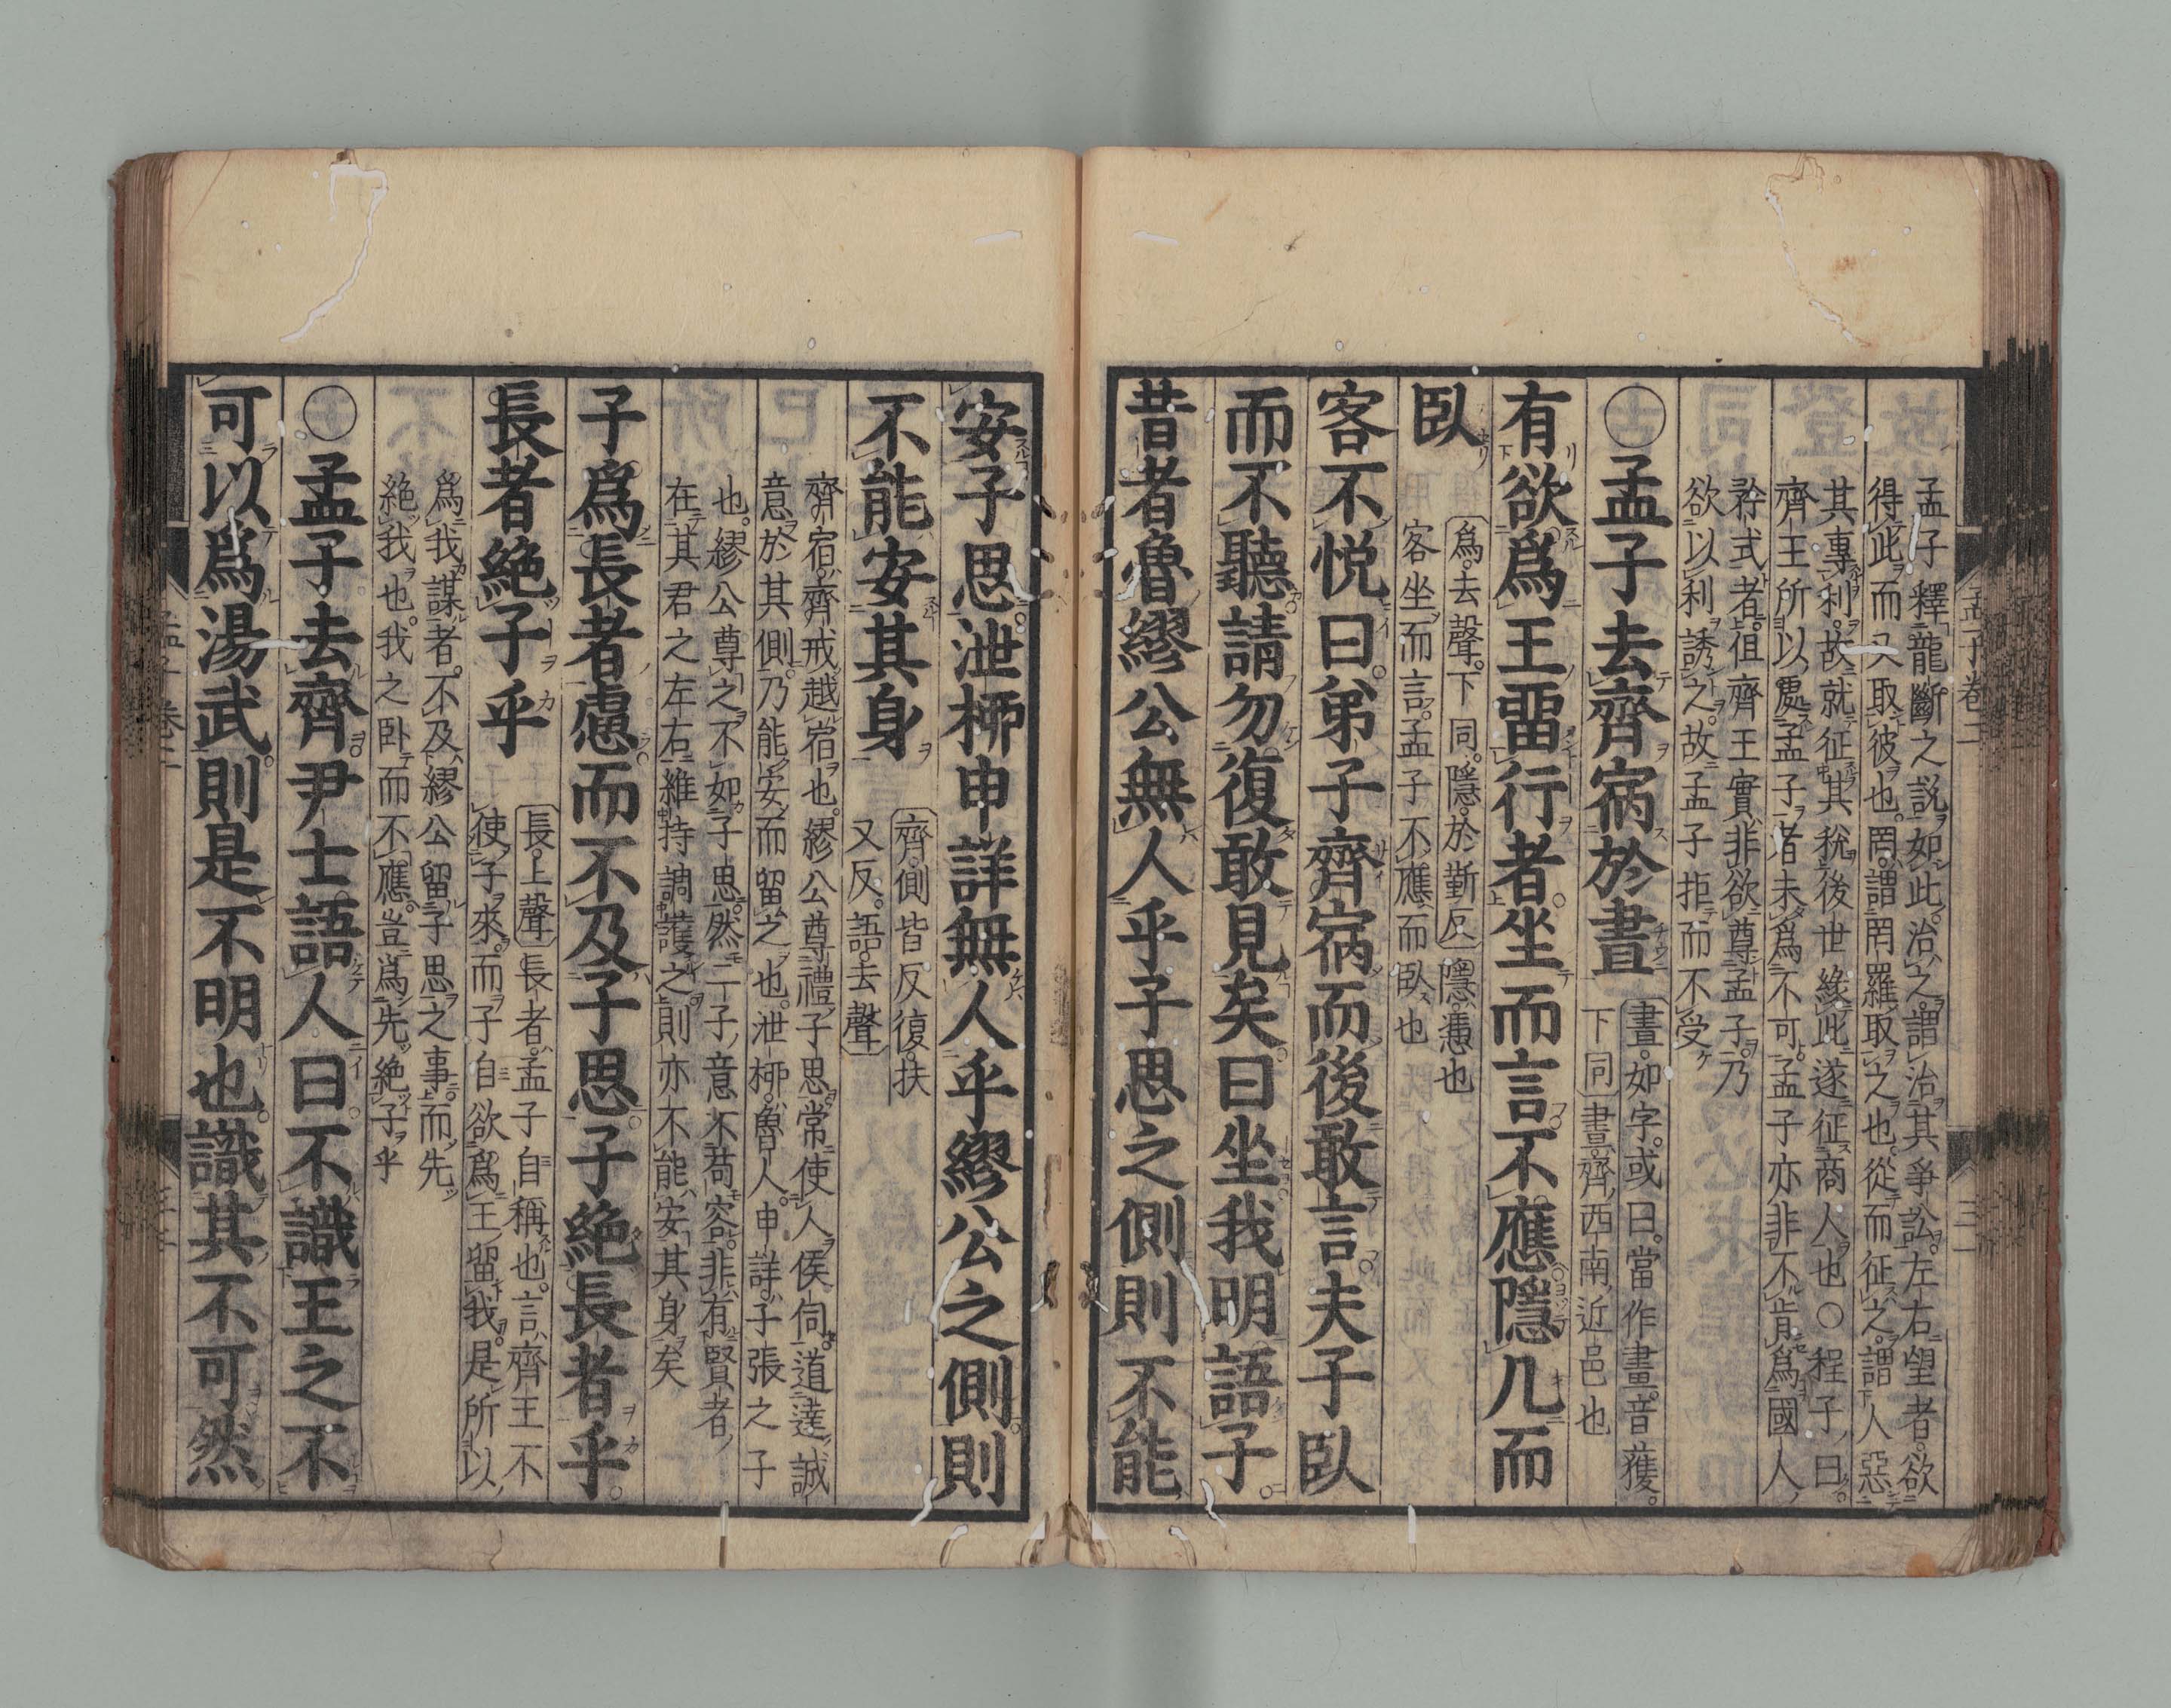 孟子釋龍斷之説如此治之謂治其爭訟左右望者欲
得此而又取彼也罔謂罔羅取之也從而征之謂人惡
其專利故就征其税後世緣此遂征商人也○程子曰
齊王所以處孟子者未爲不可孟子亦非不肯爲國人
矜式者但齊王實非欲尊孟子乃
欲以利誘之故孟子拒而不受
○孟子去齊宿於晝
晝如字或曰當作畫音獲
下同晝齊西南近邑也
有欲爲王留行者坐而言不應隱几而
臥
爲去聲下同隱於靳反隱憑也
客坐而言孟子不應而臥也
客不悦曰弟子齊宿而後敢言夫子臥
而不聽請勿復敢見矣曰坐我明語子
昔者魯繆公無人乎子思之側則不能
安子思泄柳申詳無人乎繆公之側則
不能安其身
齊側皆反復扶
又反語去聲
齊宿齊戒越宿也繆公尊禮子思常使人侯伺道達誠
意於其側乃能安而留之也泄柳魯人申詳子張之子
也繆公尊之不如子思然二子意不苟容非有賢者
在其君之左右維持調護之則亦不能安其身矣
子爲長者慮而不及子思子絶長者乎
長者絶子乎
長上聲長者孟子自稱也言齊王不
使子來而子自欲爲王留我是所以
爲我謀者不及繆公留子思之事而先
絶我也我之卧而不應豈爲先絶子乎
○孟子去齊尹士語人曰不識王之不
可以爲湯武則是不明也識其不可然
孟子卷二
三一